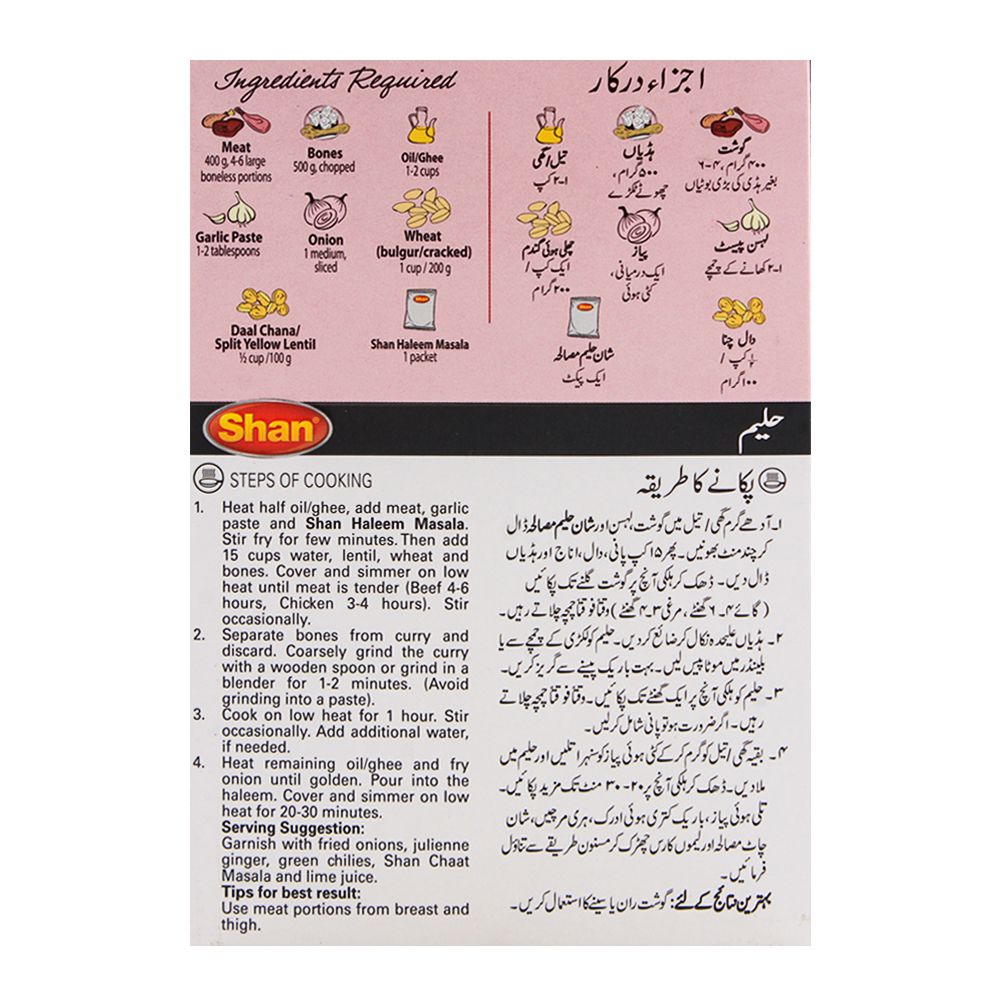 Ingredients Required
Meat
400 g, 4-6 large
boneless portions
Bones
500 g, chopped
Oil/Ghee
1-2 cups
Garlic Paste
1-2 tablespoons
Onion
1 medium,
sliced
Wheat
(bulgur/cracked)
1 cup / 200 g
Daal Chana/
Split Yellow Lentil
½ cup /100 g
Shan
Shan Haleem Masala
1 packet
اجزاء درکار
گوشت
۴۰۰ گرام، ۴-۶
بغیر ہڈی کی بڑی بوٹیاں
ہڈیاں
۵۰۰ گرام،
چھوٹے ٹکڑے
تیل/گھی
۱-۲ کپ
لہسن پیسٹ
۱-۲ کھانے کے چمچے
پیاز
ایک درمیانی،
کٹی ہوئی
چھلی ہوئی گندم
ایک کپ /
۲۰۰ گرام
دال چنا
½ کپ /
۱۰۰ گرام
Shan
شان حلیم مصالحہ
ایک پیکٹ
Shan®
حلیم
STEPS OF COOKING
1. Heat half oil/ghee, add meat, garlic
paste and Shan Haleem Masala.
Stir fry for few minutes. Then add
15 cups water, lentil, wheat and
bones. Cover and simmer on low
heat until meat is tender (Beef 4-6
hours, Chicken 3-4 hours). Stir
occasionally.
2. Separate bones from curry and
discard. Coarsely grind the curry
with a wooden spoon or grind in a
blender for 1-2 minutes. (Avoid
grinding into a paste).
3. Cook on low heat for 1 hour. Stir
occasionally. Add additional water,
if needed.
4. Heat remaining oil/ghee and fry
onion until golden. Pour into the
haleem. Cover and simmer on low
heat for 20-30 minutes.
Serving Suggestion:
Garnish with fried onions, julienne
ginger, green chilies, Shan Chaat
Masala and lime juice.
Tips for best result:
Use meat portions from breast and
thigh.
پکانے کا طریقہ
۱۔ آدھے گرم گھی/تیل میں گوشت، لہسن اور شان حلیم مصالحہ ڈال
کر چند منٹ بھونیں۔ پھر ۱۵ کپ پانی، دال، اناج اور ہڈیاں
ڈال دیں۔ ڈھک کر ہلکی آنچ پر گوشت گلنے تک پکائیں
(گائے ۴-۶ گھنٹے، مرغی ۳-۴ گھنٹے) وقتاً فوقتاً چمچہ چلاتے رہیں۔
۲۔ ہڈیاں علیحدہ نکال کر ضائع کر دیں۔ حلیم کو لکڑی کے چمچے سے یا
بلینڈر میں موٹا پیس لیں۔ بہت باریک پیسنے سے گریز کریں۔
۳۔ حلیم کو ہلکی آنچ پر ایک گھنٹے تک پکائیں۔ وقتاً فوقتاً چمچہ چلاتے
رہیں۔ اگر ضرورت ہو تو پانی شامل کر لیں۔
۴۔ بقیہ گھی/تیل کو گرم کر کے کٹی ہوئی پیاز کو سنہرا تلیں اور حلیم میں
ملا دیں۔ ڈھک کر ہلکی آنچ پر ۲۰-۳۰ منٹ تک مزید پکائیں۔
تلی ہوئی پیاز، باریک کتری ہوئی ادرک، ہری مرچیں، شان
چاٹ مصالحہ اور لیموں کا رس چھڑک کر مسنون طریقے سے تناول
فرمائیں۔
بہترین نتائج کے لئے: گوشت ران یا سینے کا استعمال کریں۔